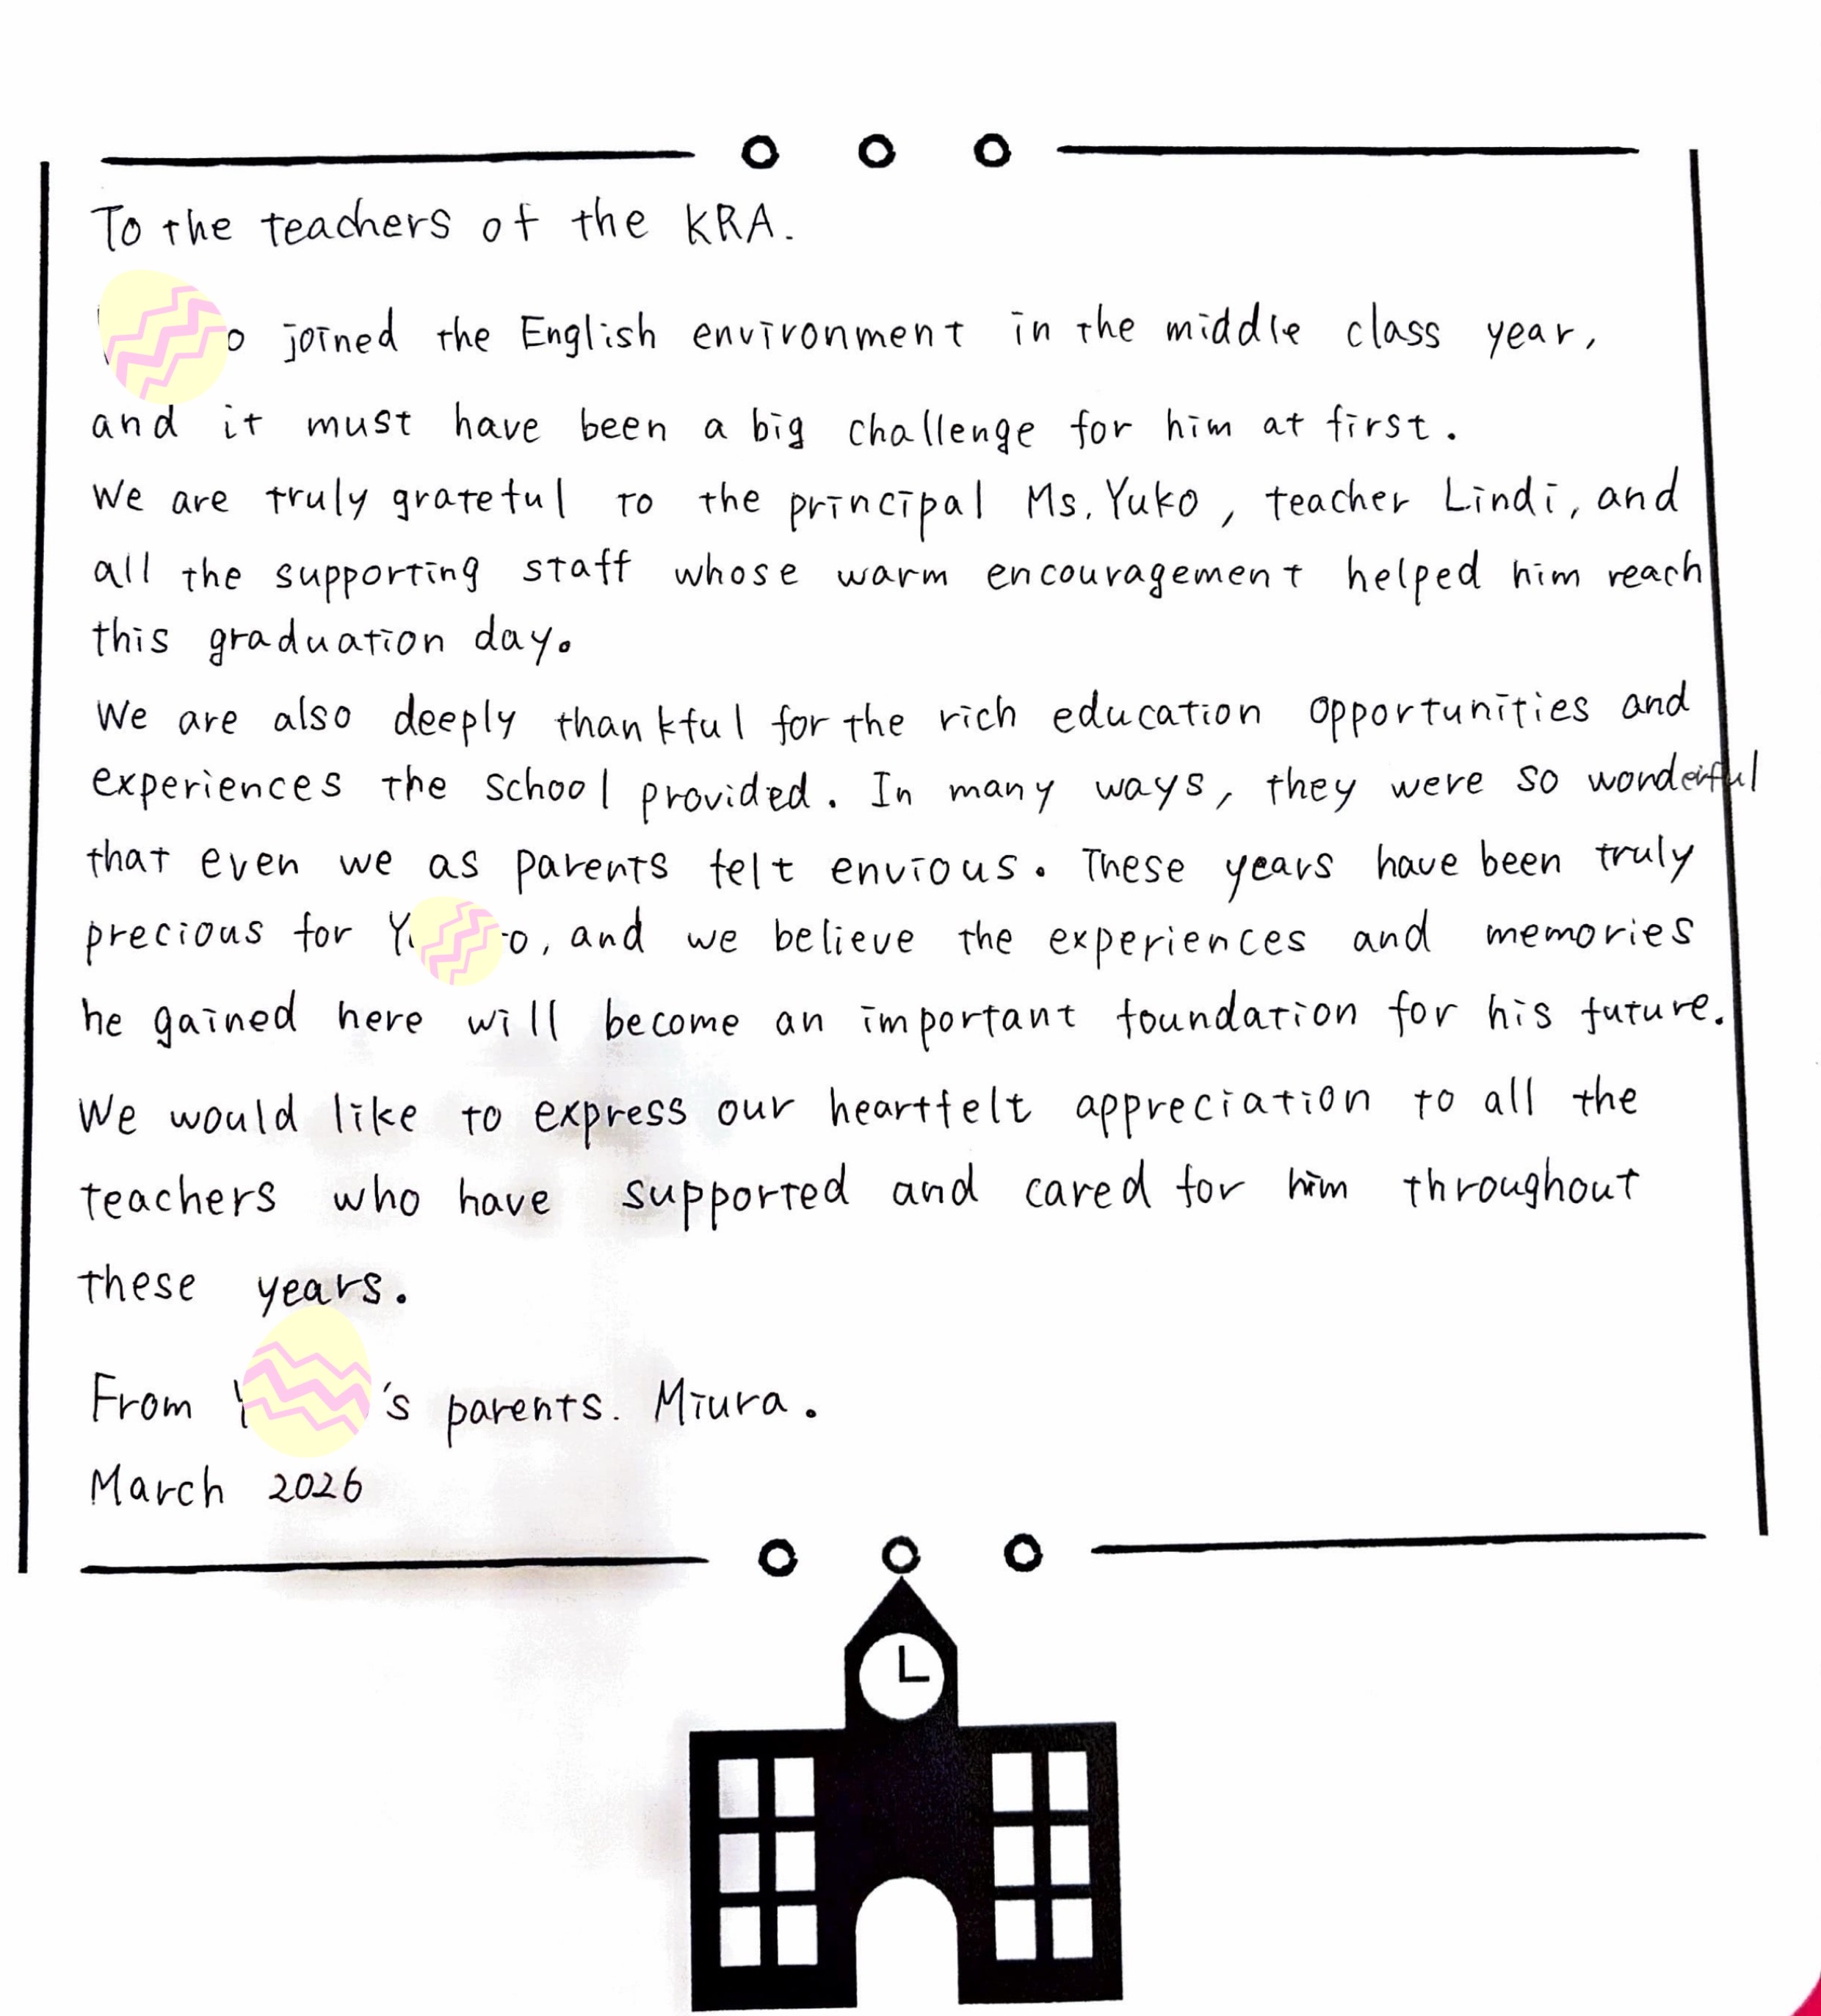 To the teachers of the KRA.
joined the English environment in the middle class year,
and it must have been a big challenge for him at first.
We are truly grateful to the principal Ms. Yuko, teacher Lindi, and
all the supporting staff whose warm encouragement helped him reach
this graduation day.
We are also deeply thankful for the rich education opportunities and
experiences the school provided. In many ways, they were so wonderful
that even we as parents felt envious. These years have been truly
precious for and we believe the experiences and memories
he gained here will become an important foundation for his future.
We would like to express our heartfelt appreciation to all the
teachers who have supported and cared for him throughout
these years.
From 's parents. Miura.
March 2026